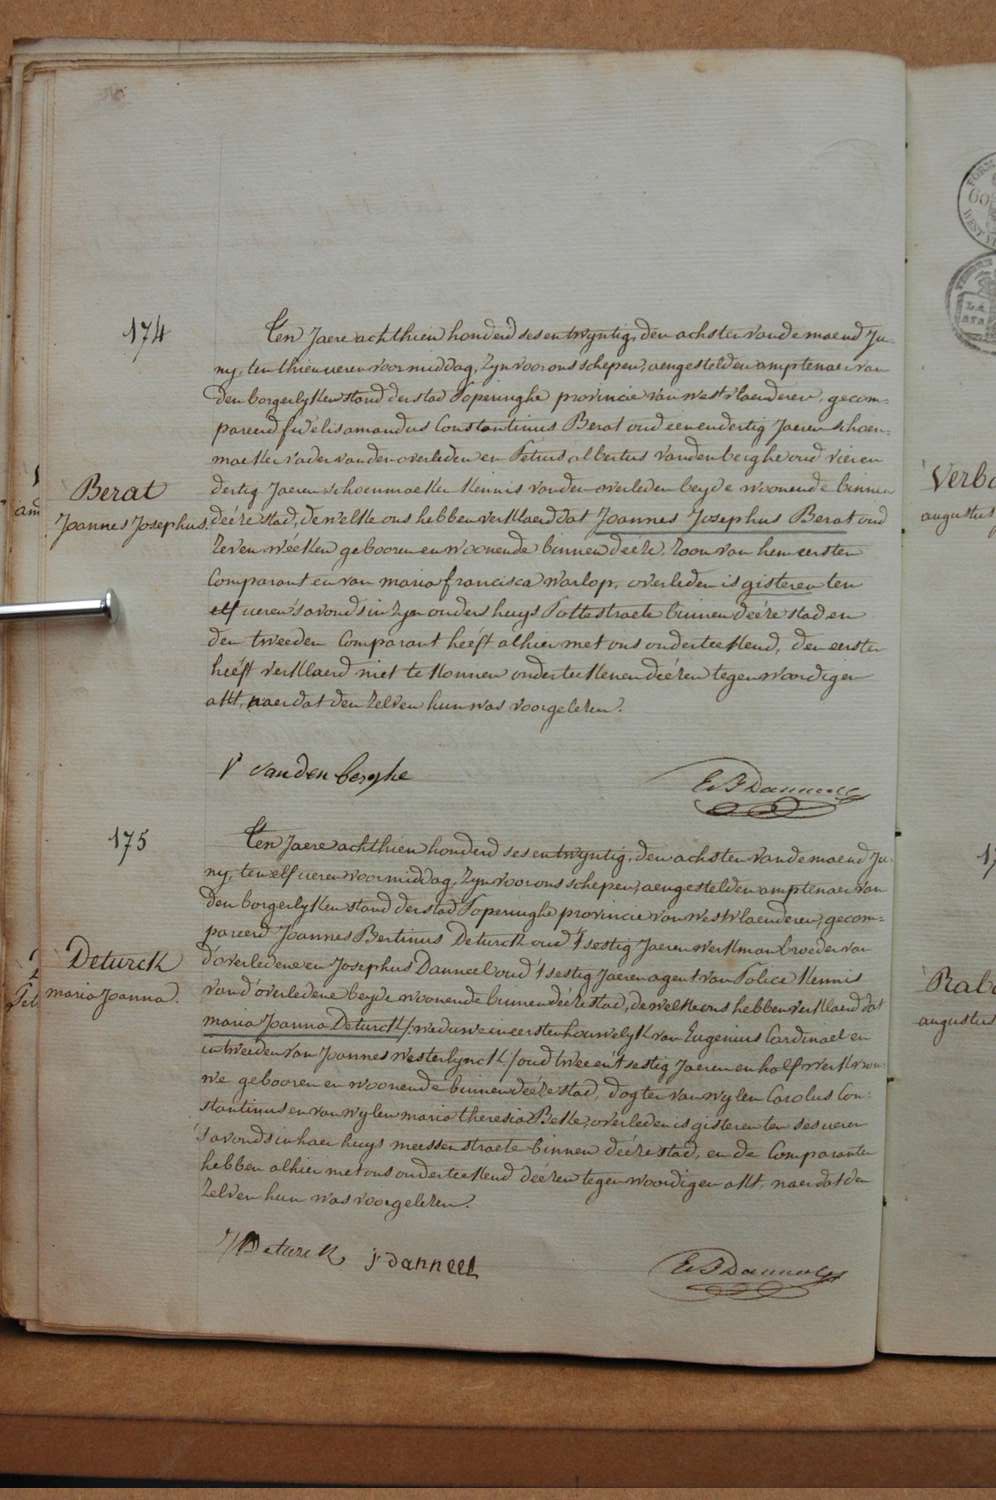 174
Ten Jaere achthien honderd ses en twyntig, den achsten van de maend Ju-
ny, ten thien ueren voormiddag, Zyn voor ons schepen, aengestelden amptenaer van
den borgerlyken stand der stad Poperinghe provincie van westvlaenderen, gecom-
pareerd fidelis amandus Constantinus Berat oud een en dertig Jaeren schoen-
maeker vader van den overleden en Petrus albertus vandenberghe oud vier en
dertig Jaeren schoenmaeker kennis van den overleden beyde woonende binnen
Berat
Joannes Josephus.
deéze stad, de welke ons hebben verklaerd dat Joannes Josephus Berat oud
zeven wéeken gebooren en woonende binnen deéze, zoon van hem eersten
Comparant en van maria francisca warlop, overleden is gisteren ten
elf ueren s'avonds in zyn ouders huys Pottestraete binnen deéze stad en
den tweeden Comparant heéft alhier met ons onderteekend, den eersten
heéft verklaerd niet te konnen onderteekenen deézen tegenwoordigen
akt, naer dat den zelven hun was voorgelezen.
P vanden berghe
175
Ten Jaere achthien honderd ses en twyntig, den achsten van de maend Ju-
ny, ten elf ueren voormiddag, Zyn voor ons schepen, aengestelden amptenaer van
den borgerlyken stand der stad Poperinghe provincie van westvlaenderen, gecom-
pareerd Joannes Bertinus Deturck oud 't sestig Jaeren werkman broeder van
Deturck
maria Joanna.
d'overledene en Josephus Danneel oud 't sestig Jaeren agent van Police kennis
van d'overledene beyde woonende binnen deéze stad, de welke ons hebben verklaerd dat
maria Joanna Deturck / weduwe in eersten houwelyk van Eugenius Cardinael en
in tweeden van Joannes westerlynck / oud twee en 't sestig Jaeren en half werkvrou-
we gebooren en woonende binnen deéze stad, dogter van wylen Carolus Con-
stantinus en van wylen maria theresia Belle, overleden is gisteren ten ses ueren
's avonds in haer huys meessenstraete binnen deéze stad, en de Comparanten
hebben alhier met ons onderteekend deézen tegenwoordigen akt, naer dat den
zelven hun was voorgelezen.
Deturck j danneel
Verb
augustus
Rab
augustus